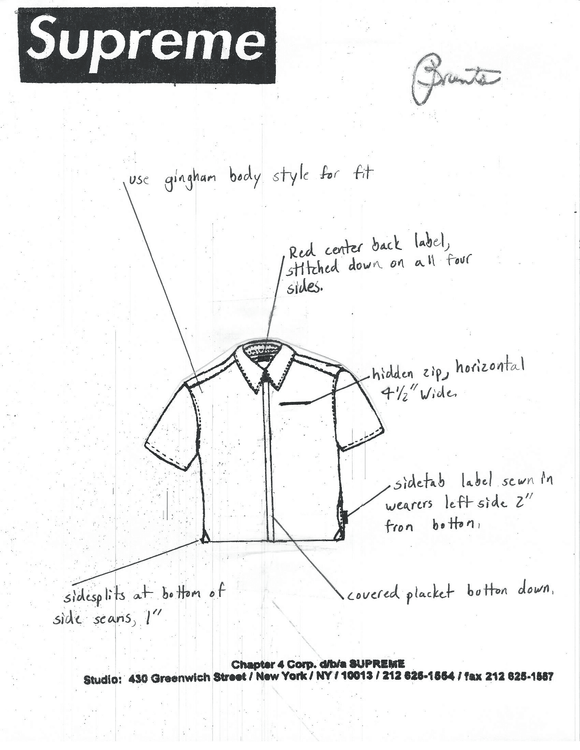 Supreme
use gingham body style for fit
Red center back label,
stitched down on all four
sides.
hidden zip, horizontal
4½" wide.
sidetab label sewn in
wearers left side 2"
from botton.
sidesplits at bottom of
side seans, 1"
covered placket button down.
Chapter 4 Corp. d/b/a SUPREME
Studio: 430 Greenwich Street / New York / NY / 10013 / 212 625-1554 / fax 212 625-1557